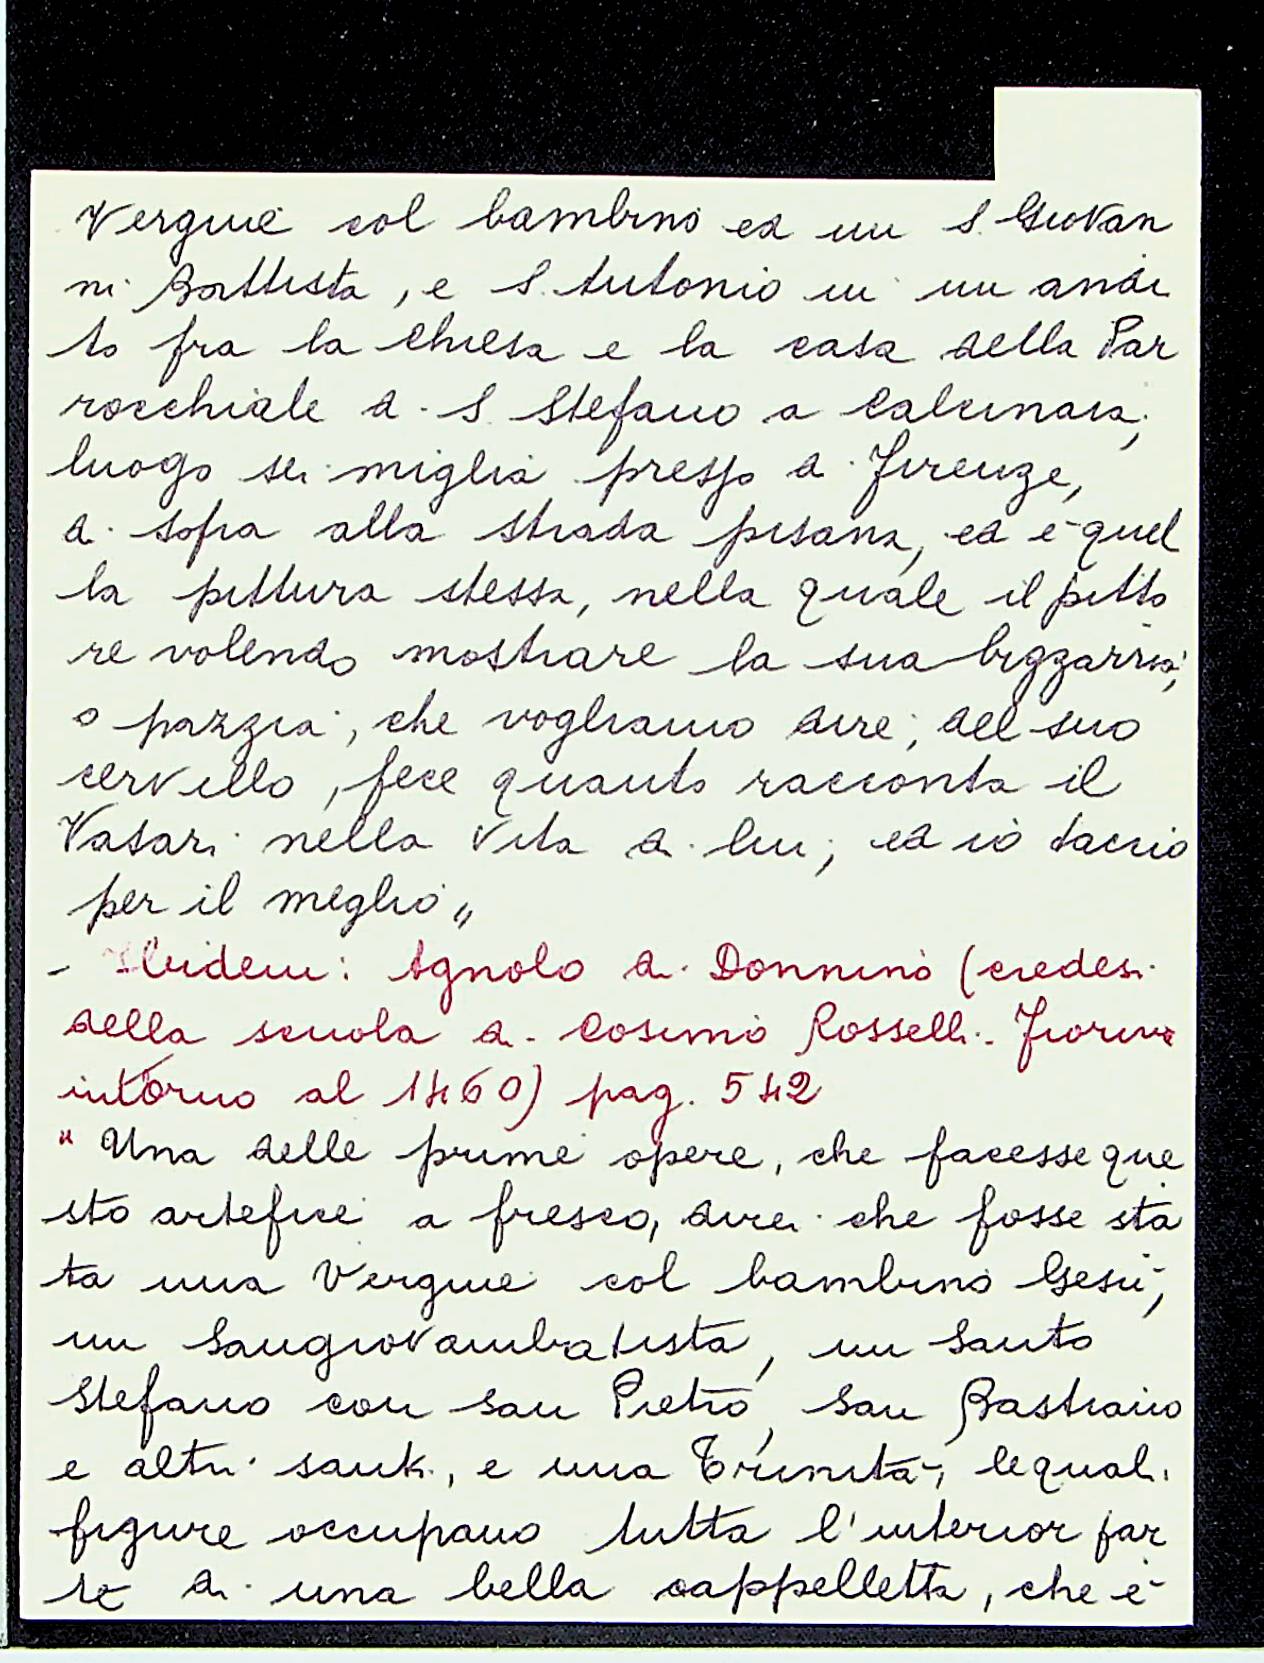 Vergine col bambino ed un S. Giovan
ni Battista, e S. Antonio in un andi
to fra la chiesa e la casa della Par
rocchiale di S. Stefano a Calcinaia,
luogo sei miglia presso a Firenze,
di sopra alla strada pisana, ed è quel
la pittura stessa, nella quale il pitto
re volendo mostrare la sua bizzarria,
o pazzia, che vogliamo dire, del suo
cervello, fece quanto racconta il
Vasari nella Vita di lui; ed io taccio
per il meglio"
- Ibidem: Agnolo di Donnino (credesi
della scuola di Cosimo Rosselli. Fioriva
intorno al 1460) pag. 542
"Una delle prime opere, che facesse que
sto artefice a fresco, direi che fosse sta
ta una Vergine col bambino Gesù,
un Sangiovambatista, un Santo
Stefano con San Pietro, San Bastiano
e altri santi, e una Trinità, le quali
figure occupano tutta l'interior par
te di una bella cappelletta, che è